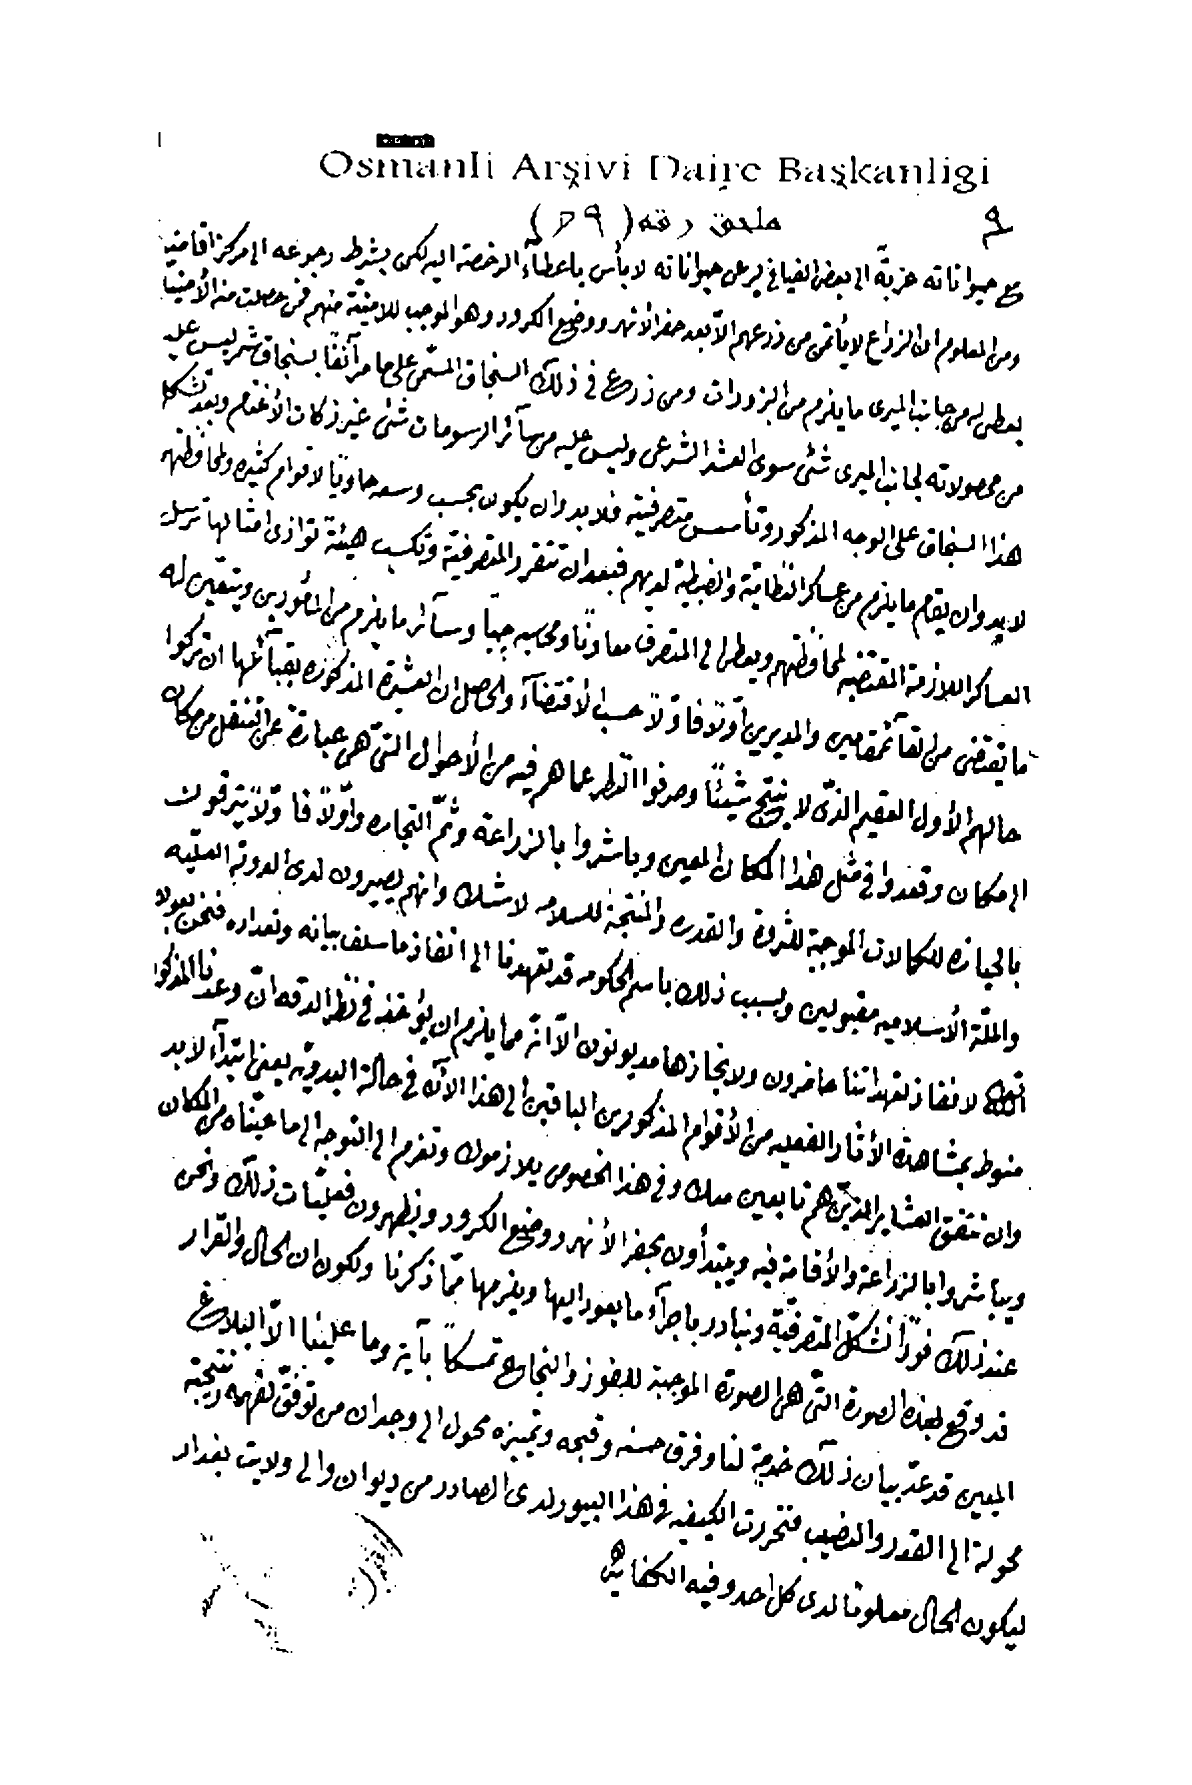 Osmanli Arşivi Daire Başkanligi
ملحق رقم (٥٩)
٩
مع حيواناته عزبةً الى بعض الفيافي ليرعى حيواناته لا بأس باعطاء الرخصة اليه لكن بشرط رجوعه الى مركز اقامته
ومن المعلوم ان الزراع لا يأتمن من زرعهم الّا بعد حفر الأنهر ووضع الكرود وهو الموجب للامنيّة منهم فمن حصلت منه الأمنية
يعطى له من جانب الميرى ما يلزم من البزورات ومن زرع في ذلك السنجاق المسمّى على ما مرّ آنفًا بسنجاق شمر ليس عليه
من محصولاته لجانب الميرى شئ سوى العشر الشرعى وليس عليه من سآئر الرسومات شئ غير زكات الأغنام وبعد تشكل
هذا السنجاق على الوجه المذكور وتأسس متصرفيته فلا بد وان يكون بحسب وسعه حاويًا لاقوام كثيره ولمحافظتهم
لا بد وان يقام ما يلزم من عساكر النظامية والضبطية لديهم فبعد ان تتقرر المتصرفيّة وتكسب هيئة توازى امثالها ترسل
العساكر اللازمة المقتضيه لمحافظتهم ويعطى الى المتصرف معاونًا ومحاسبه جيًا وسآئر ما يلزم من المأمورين ويتعين له
ما يقتضى من القآئمقامين والمديرين اوّلًا فاوّلًا حسب الأقتضآء والحاصل ان العشيرة المذكوره بقبآئلها ان تركوا
حالهم الأول العقيم الذى لا ينتج شيئًا وصرفوا النظر عما هم فيه من الأحوال التى هى عبارة عن التنقل من مكان
الى مكان وقعدوا في مثل هذا المكان المعين وباشروا بالزراعة وثمّ التجاره واوّلًا فاوّلًا يترقون
بالحيازه للكمالات الموجبة للثروة والقدره والمنتجة للسلامه لا شك وانهم يصيرون لدى الدولة العليّه
والملّة الأسلاميه مقبولين وبسبب ذلك باسم الحكومه قد تعهدنا الى انفاذ ما سلف بيانه وتعداده فنحن بعون
الله لانفاذ تعهداتنا حاضرون ولانجازها مديونون الّا انّه مما يلزم ان يؤخذ في نظر الدقه انّ وعدنا المذكور
منوط بمشاهدة الأثار الفعليه من الأقوام المذكورين الباقين الى هذا الآن في حالة البدويّه يعنى ابتدآء لا بد
وان تتفق العشاير الذين هم تابعين منك وفي هذا الخصوص يلازموك وتعزم الى التوجه الى ما عيّناه من المكان
ويباشروا بالزراعة والأقامة فيه ويبتدأون بحفر الأنهر ووضع الكرود ويظهرون فعليّات ذلك ونحن
عند ذلك فورًا نشكّل المتصرفيّة ونبادر باجرآء ما يعود اليها ويلزمها ممّا ذكرنا ولكون ان الحال والقرار
قد وقع بهذه الصورة التى هى الصورة الموجبة للفوز والنجاح تمسكًا بآية وما علينا الّا البلاغ
المبين قد عدّ بيان ذلك خدمة لنا وفرق حسنه وقبحه وتميزه محول الى وجدان من توفّق لفهمه ونتيجته
محولة الى القدر والنصيب فتحررت الكيفيه في هذا البيورلدى الصادر من ديوان والى ولايت بغداد
ليكون الحال معلومًا لدى كل احد وفيه الكفايه